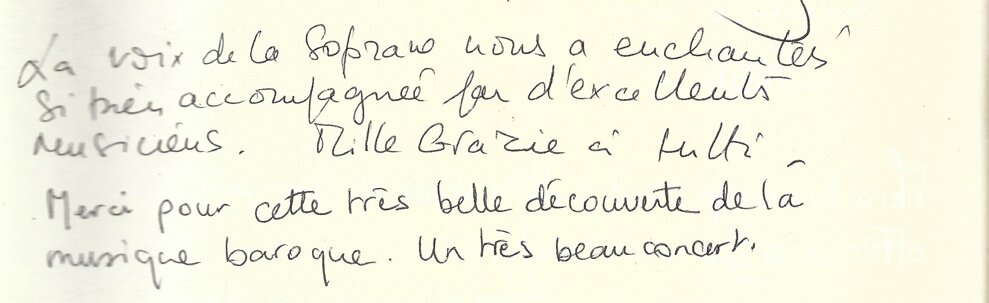 La voix de la Soprano nous a enchantés
si bien accompagnée par d'excellents
musiciens. Mille Grazie à tutti
Merci pour cette très belle découverte de la
musique baroque. Un très beau concert.